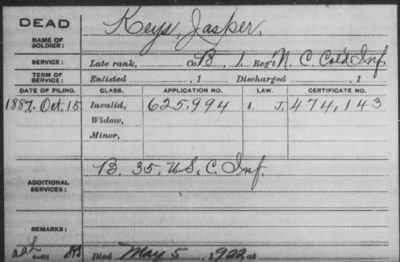 DEAD
NAME OF SOLDIER: Keys, Jasper.
SERVICE: Late rank, Co. B, 1, Reg't N. C. Col'd Inf.
TERM OF SERVICE: Enlisted , 1 Discharged , 1
DATE OF FILING. CLASS. APPLICATION NO. LAW. CERTIFICATE NO.
1887. Oct. 15 Invalid, 625,994 J. 474,143
Widow,
Minor,
ADDITIONAL SERVICES: B. 35, U.S. C. Inf.
REMARKS:
Died May 5, 1922, at